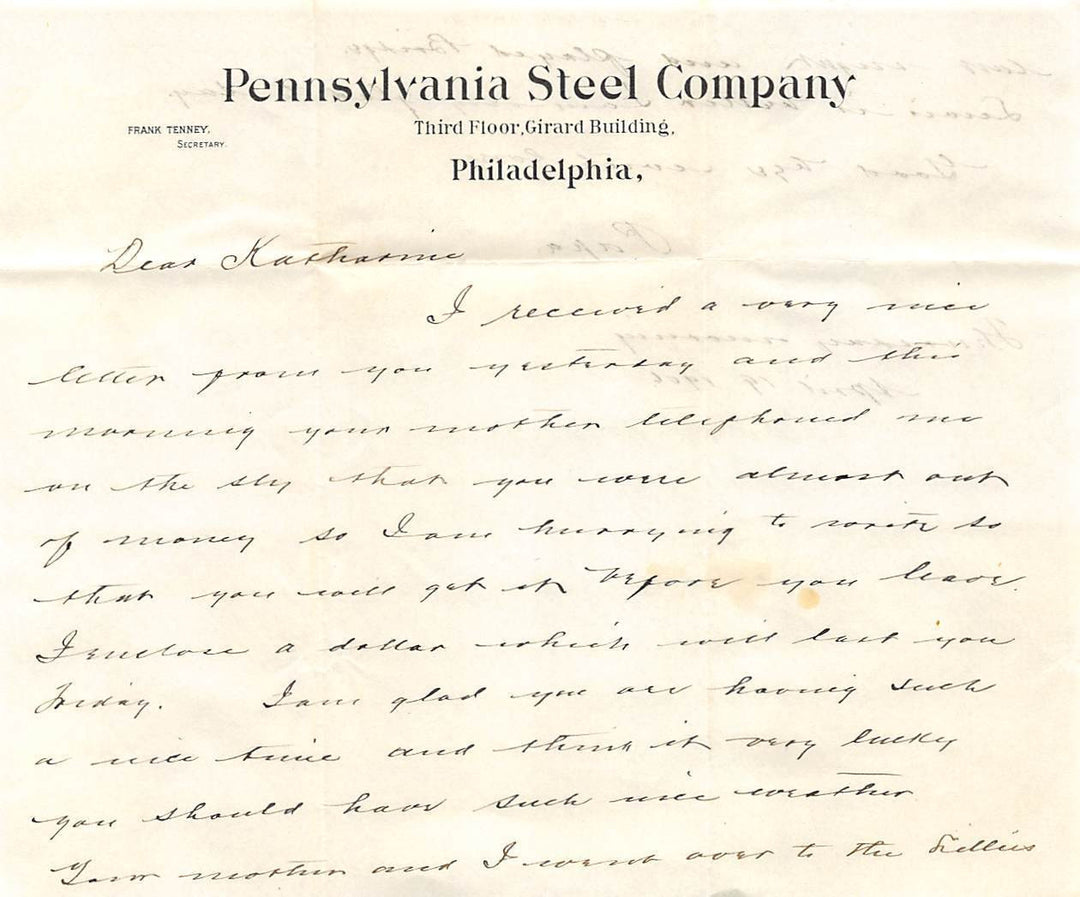 Pennsylvania Steel Company
FRANK TENNEY,
SECRETARY.
Third Floor, Girard Building,
Philadelphia,
Dear Katharine
I received a very nice
letter from you yesterday and this
morning your mother telephoned me
on the sly that you were almost out
of money so I am hurrying to write so
that you will get it before you leave.
I enclose a dollar which will last you
Friday. I am glad you are having such
a nice time and think it very lucky
you should have such nice weather
Your mother and I went over to the